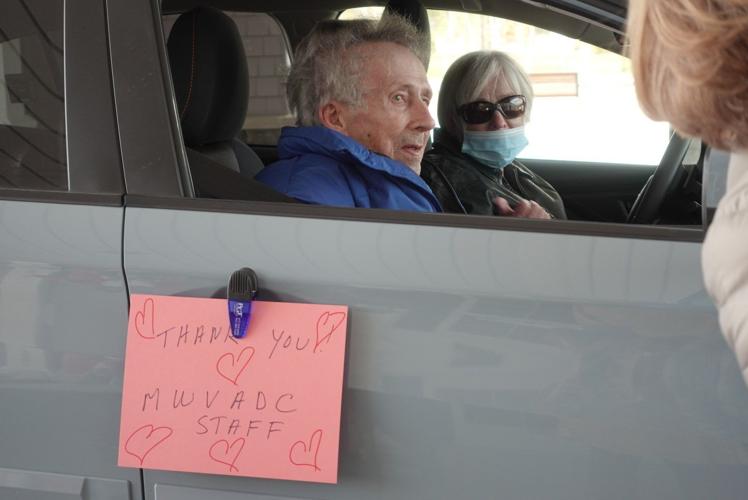 THANK YOU!
MWVADC
STAFF